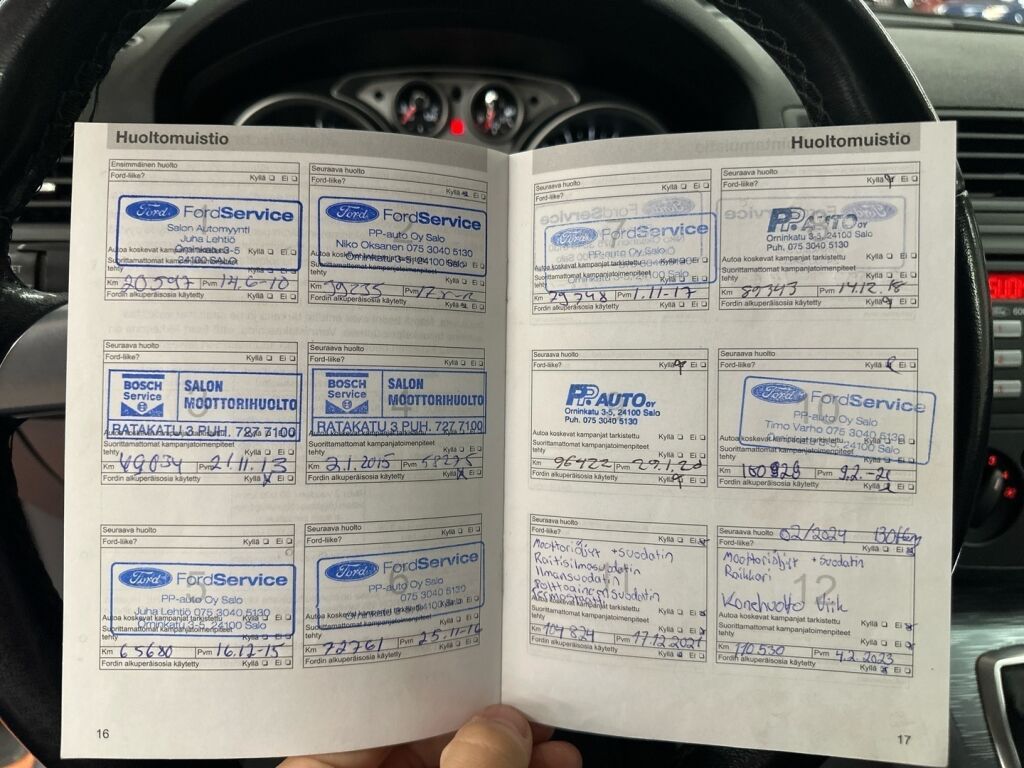 Huoltomuistio
Ensimmäinen huolto
Ford-liike?
Kyllä Ei
Ford FordService
Salon Automyynti
Juha Lehtiö
Örninkatu 3-5
24100 SALO
Autoa koskevat kampanjat tarkistettu Kyllä Ei
Suorittamattomat kampanjatoimenpiteet
tehty Kyllä Ei
Km 20597 Pvm 14.6-10
Fordin alkuperäisosia käytetty Kyllä Ei
Seuraava huolto
Ford-liike?
Kyllä Ei
Ford FordService
PP-auto Oy Salo
Niko Oksanen 075 3040 5130
Örninkatu 3-5, 24100 Salo
Km 39235 Pvm
Fordin alkuperäisosia käytetty Kyllä Ei
Seuraava huolto
Ford-liike? Kyllä Ei
BOSCH
Service
SALON
MOOTTORIHUOLTO
RATAKATU 3 PUH. 727 7100
Suorittamattomat kampanjatoimenpiteet
tehty Kyllä Ei
Km 49034 Pvm 21.11.13
Fordin alkuperäisosia käytetty Kyllä Ei
Seuraava huolto
Ford-liike? Kyllä Ei
BOSCH
Service
SALON
MOOTTORIHUOLTO
RATAKATU 3 PUH. 727 7100
Suorittamattomat kampanjatoimenpiteet
tehty Kyllä Ei
Km 2.1.2015 Pvm 58225
Fordin alkuperäisosia käytetty Kyllä Ei
Seuraava huolto
Ford-liike? Kyllä Ei
5
Ford FordService
PP-auto Oy Salo
Juha Lehtiö 075 3040 5130
Autoa koskevat kampanjat tarkistettu
Örninkatu 3-5, 24100 Salo
Suorittamattomat kampanjatoimenpiteet
tehty Kyllä Ei
Km 65680 Pvm 16.12-15
Fordin alkuperäisosia käytetty Kyllä Ei
Seuraava huolto
Ford-liike? Kyllä Ei
6
Ford FordService
PP-auto Oy Salo
Autoa koskevat kampanjat tarkistettu
Suorittamattomat kampanjatoimenpiteet
tehty Kyllä Ei
Km 72761 Pvm 25-11-16
Fordin alkuperäisosia käytetty Kyllä Ei
16
Huoltomuistio
Seuraava huolto
Ford-liike? Kyllä Ei
Ford FordService
PP-auto Oy Salo
Autoa koskevat kampanjat tarkistettu
Suorittamattomat kampanjatoimenpiteet
tehty Kyllä Ei
Km 79348 Pvm 1.11-17
Fordin alkuperäisosia käytetty Kyllä Ei
Seuraava huolto
Ford-liike? Kyllä Ei
PP AUTO OY
Örninkatu 3-5, 24100 Salo
Puh. 075 3040 5130
Autoa koskevat kampanjat tarkistettu Kyllä Ei
Suorittamattomat kampanjatoimenpiteet
tehty Kyllä Ei
Km 89343 Pvm 14.12.18
Fordin alkuperäisosia käytetty Kyllä Ei
Seuraava huolto
Ford-liike? Kyllä Ei
PP AUTO OY
Örninkatu 3-5, 24100 Salo
Puh. 075 3040 5130
Autoa koskevat kampanjat tarkistettu Kyllä Ei
Suorittamattomat kampanjatoimenpiteet
tehty Kyllä Ei
Km 96422 Pvm 29.1.20
Fordin alkuperäisosia käytetty Kyllä Ei
Seuraava huolto
Ford-liike? Kyllä Ei
Ford FordService
PP-auto Oy Salo
Timo Varho 075 3040 5130
Autoa koskevat kampanjat tarkistettu
Suorittamattomat kampanjatoimenpiteet
tehty Kyllä Ei
Km 100828 Pvm 9.2.-21
Fordin alkuperäisosia käytetty Kyllä Ei
Seuraava huolto
Ford-liike? Kyllä Ei
Moottoriöljyt +suodatin
Raitisilmasuodatin
Ilmansuodatin
Polttoaineensuodatin
Autoa koskevat kampanjat tarkistettu Kyllä Ei
Suorittamattomat kampanjatoimenpiteet
tehty Kyllä Ei
Km 104824 Pvm 17.12.2021
Fordin alkuperäisosia käytetty Kyllä Ei
Seuraava huolto 02/2024
Ford-liike? Kyllä Ei
Moottoriöljyt +suodatin
12
Konehuolto Viik
Autoa koskevat kampanjat tarkistettu Kyllä Ei
Suorittamattomat kampanjatoimenpiteet
tehty Kyllä Ei
Km 110530 Pvm 4.2.2023
Fordin alkuperäisosia käytetty Kyllä Ei
17